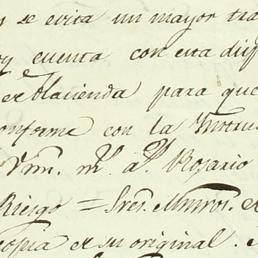 s se evita un mayor tra
oy cuenta con esta disp
e Hacienda para que
onforme con la Instruc
Rosario
Riesgo = Sres. Mtros. d
copia de su original.